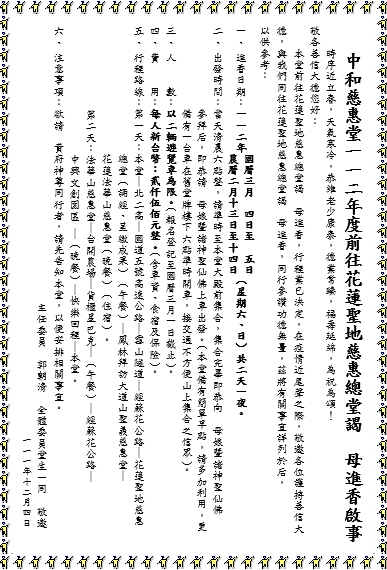 中和慈惠堂一一二年度前往花蓮聖地慈惠總堂謁　母進香啟事
時序近立春，天氣寒冷，恭維老少康泰，德業常臻，福壽延綿，為祝為頌！
敬各善信大德您好：
本堂前往花蓮聖地慈惠總堂謁　母進香，行程業已決定，在疫情近尾聲之際，敬邀各位護持善信大
德，與我們同往花蓮聖地慈惠總堂謁　母進香，同行參讚功德無量，茲將有關事宜詳列於后，
以供參考：
一、進香日期：一一二年國曆三月　四日至　五日
農曆二月十三日至十四日（星期六、日）共二天一夜。
二、出發時間：當天清晨六點整，請準時至本堂大殿前集合，集合完善即恭向　母娘暨諸神聖仙佛
參拜后，即恭請　母娘暨諸神聖仙佛上車出發。（本堂備有簡單早點，請多加利用，更
備有一台車在舊堂牌樓下六點準時開車，接交通不方便山上集合之信眾）。
三、人　　數：以二輛遊覽車為限。（報名登記至國曆三月一日截止）。
四、費　　用：每人新台幣：貳仟伍佰元整。（含車資、食宿及保險）。
五、行程路線：第一天：本堂—北二高—國道五號高速公路—雪山隧道—經蘇花公路—花蓮聖地慈惠
總堂（誦經、呈繳成果）（午餐）—鳳林拜訪大道山聖義慈惠堂—
花蓮法華山慈惠堂（晚餐）（住宿）。
第二天：法華山慈惠堂—台開農場—貨櫃星巴克—（午餐）—經蘇花公路—
中興文創園區—（晚餐）—快樂回程—本堂。
六、注意事項：欲請　貴府神尊同行者，請先告知本堂，以便安排相關事宜。
主任委員　郭朝清　全體委員堂生一同　敬邀
一一一年十二月四日